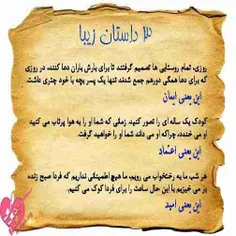 ۳ داستان زیبا
روزی، تمام روستایی ها تصمیم گرفتند تا برای بارش باران دعا کنند، در روزی
که برای دعا همگی دورهم جمع شدند تنها یک پسر بچه با خود چتری داشت،
این یعنی ایمان
کودک یک ساله ای را تصور کنید، زمانی که شما او را به هوا پرتاب می کنید
او می خندد، چراکه او می داند شما او را خواهید گرفت.
این یعنی اعتماد
هر شب ما به رختخواب می رویم، ما هیچ اطمینانی نداریم که فردا صبح زنده
بر می خیزیم با این حال ساعت را برای فردا کوک می کنیم.
این یعنی امید